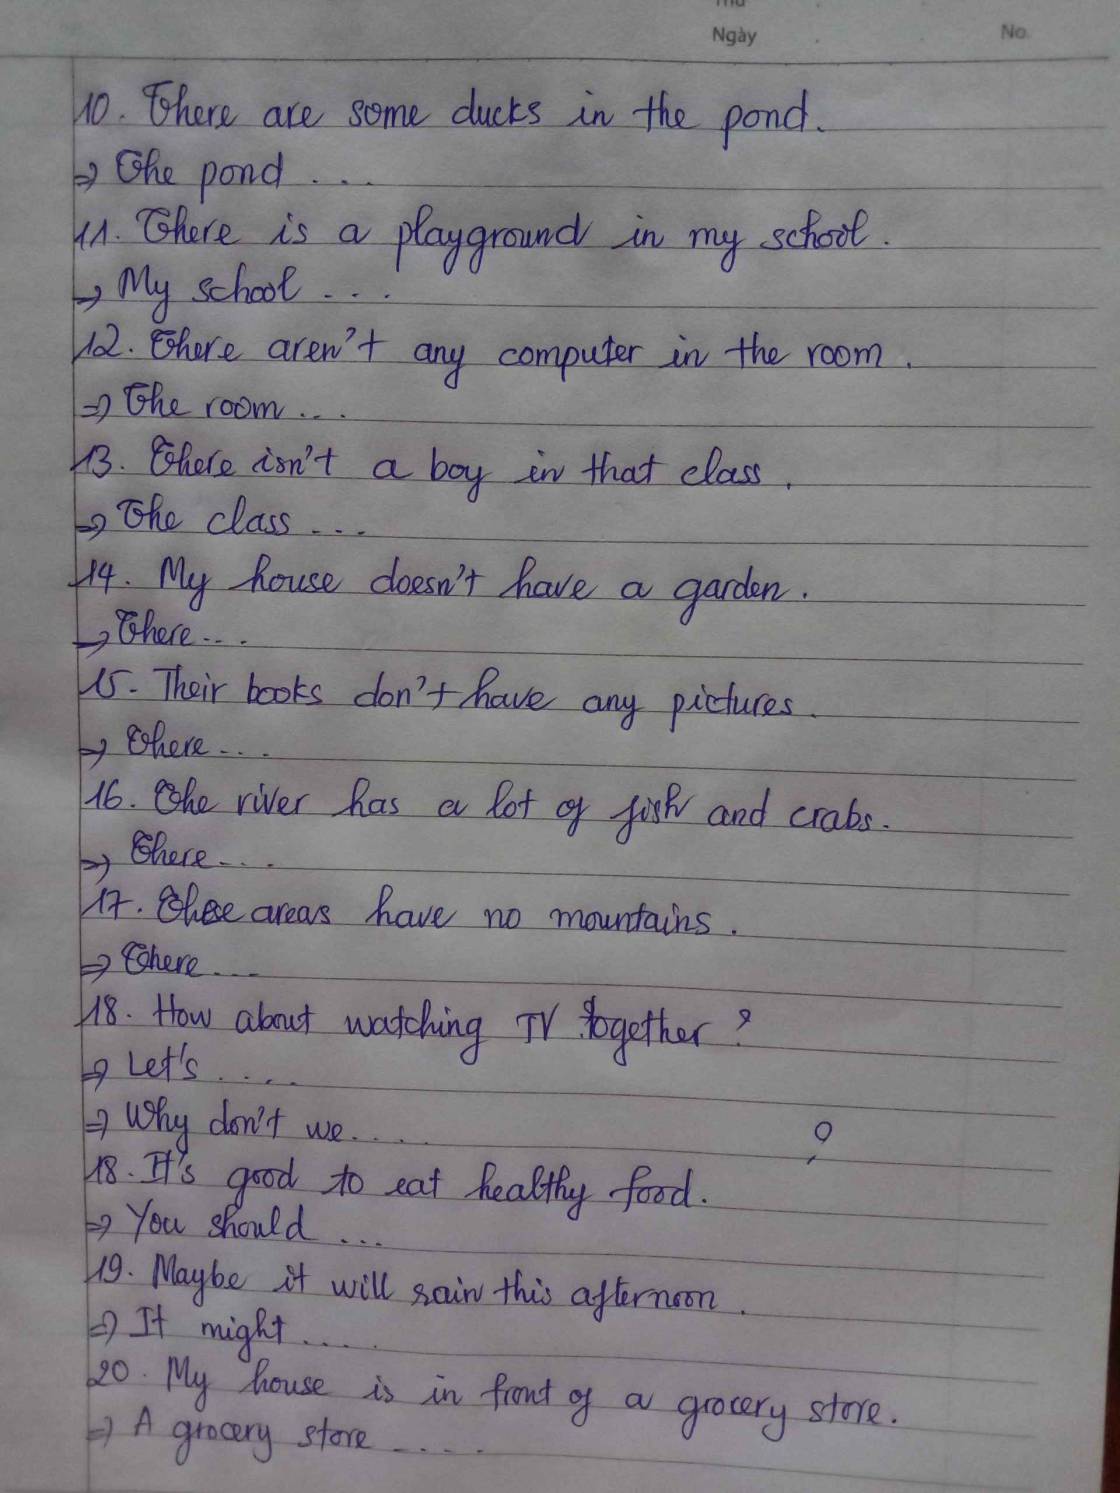 Thứ
Ngày
No.
10. There are some ducks in the pond.
=> The pond ...
11. There is a playground in my school.
=> My school ...
12. There aren't any computer in the room.
=> The room ...
13. There isn't a boy in that class.
=> The class ...
14. My house doesn't have a garden.
=> There ...
15. Their books don't have any pictures.
=> There ...
16. The river has a lot of fish and crabs.
=> There ...
17. These areas have no mountains.
=> There ...
18. How about watching TV together?
=> Let's ....
=> Why don't we.... ?
18. It's good to eat healthy food.
=> You should ...
19. Maybe it will rain this afternoon.
=> It might ....
20. My house is in front of a grocery store.
=> A grocery store ....